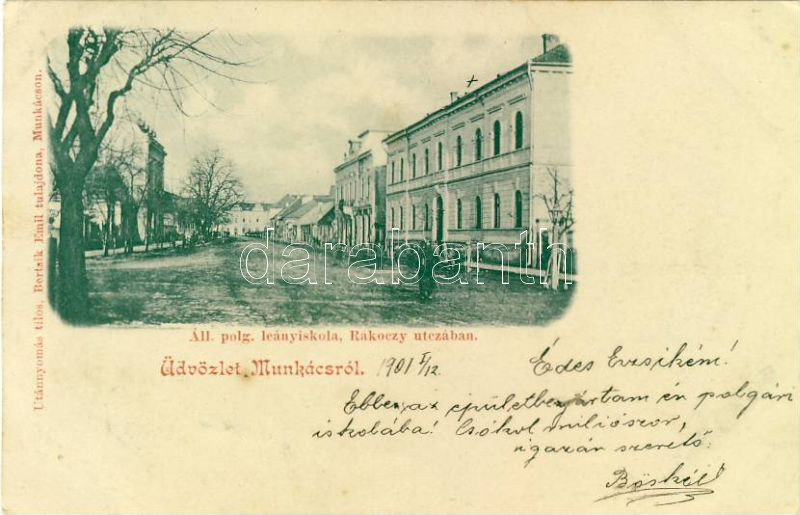 Utánnyomás tilos, Bertsik Emil tulajdona, Munkácson.
darabanth
Áll. polg. leányiskola, Rákoczy utczában.
Üdvözlet Munkácsról. 1901 I/12
Édes Erzsikém!
Ebbe az épületbe jártam én polgári
iskolába! Csókol milliószor,
igazán szerető
Böskéd